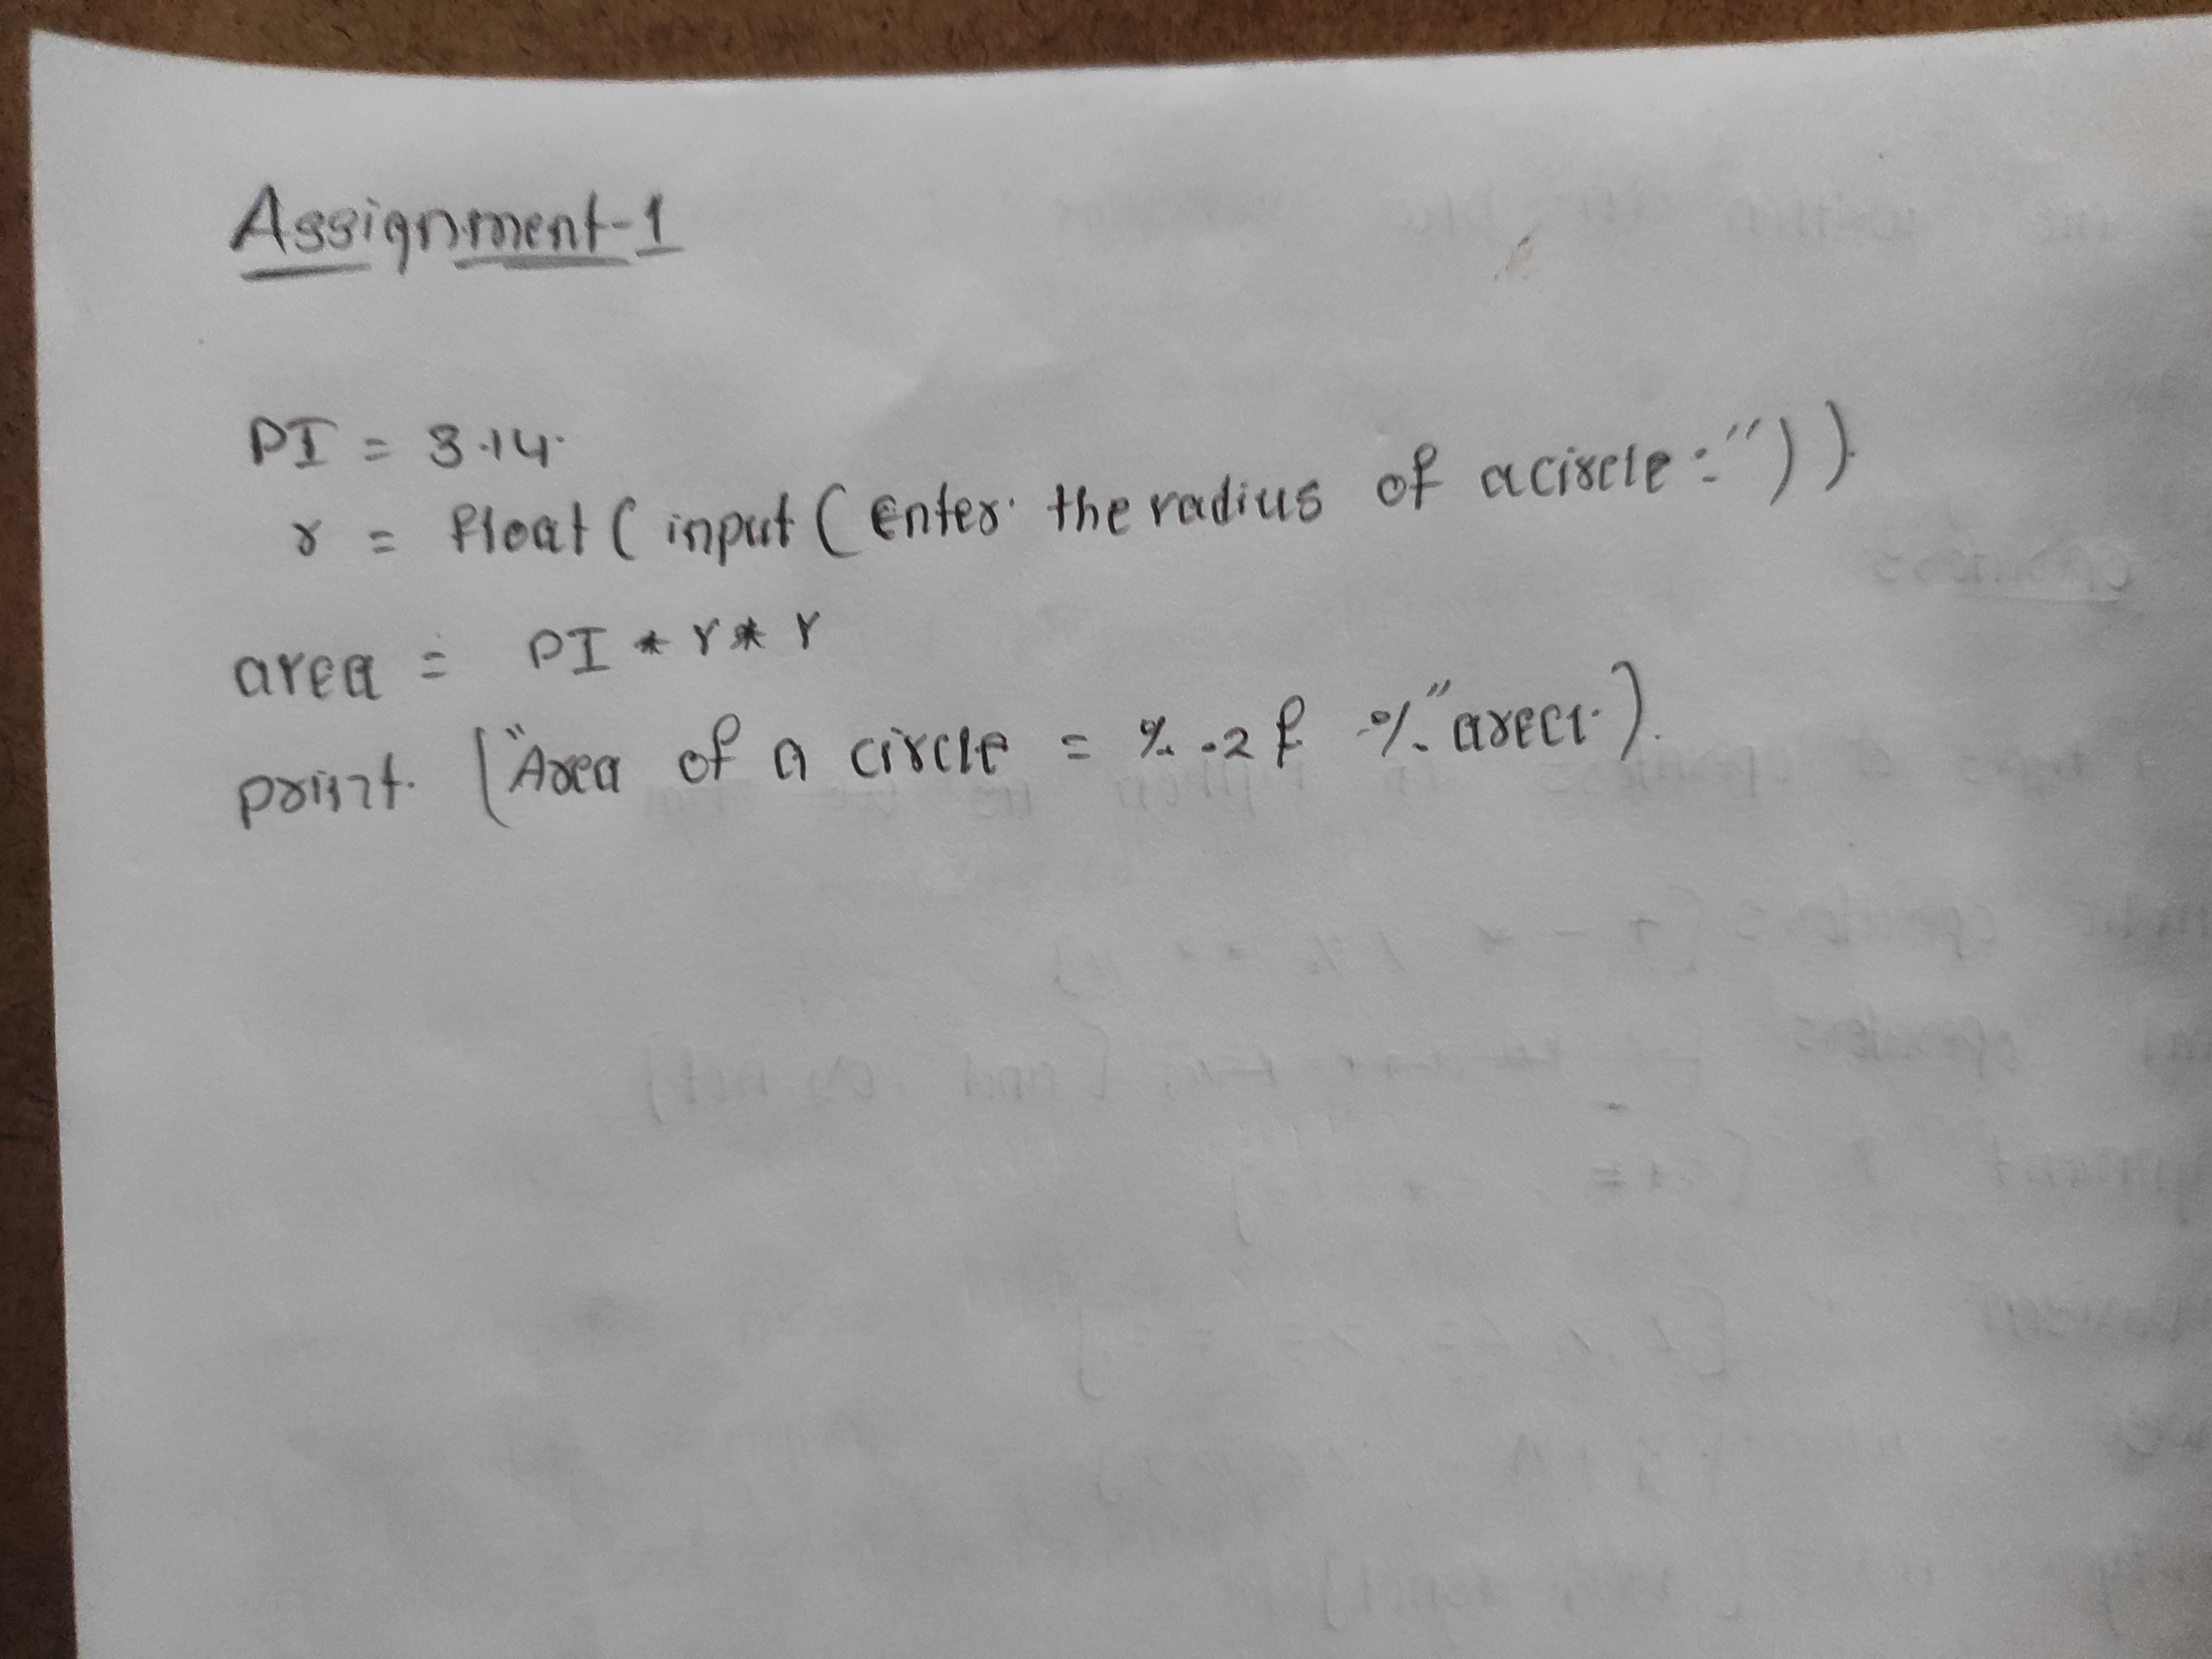 Assignment-1
PI = 3.14.
r = float(input(Enter the radius of a circle:"))
area = PI * r * r
print ("Area of a circle = %.2f %"area)